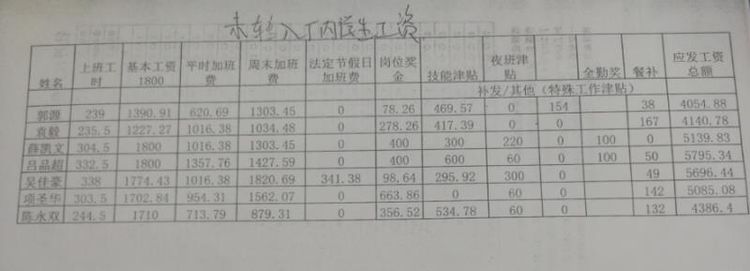 未转入厂内学生工资
姓名 上班工时 基本工资1800 平时加班费 周末加班费 法定节假日加班费 岗位奖金 技能津贴 夜班津贴 全勤奖 餐补 应发工资总额
补发/其他（特殊工作津贴）
郭源 239 1390.91 620.69 1303.45 0 78.26 469.57 0 154 38 4054.88
袁毅 235.5 1227.27 1016.38 1034.48 0 278.26 417.39 0 0 167 4140.78
薛凯文 304.5 1800 1016.38 1303.45 0 400 300 220 0 100 0 5139.83
吕品超 332.5 1800 1357.76 1427.59 0 400 600 60 0 100 50 5795.34
吴佳豪 338 1774.43 1016.38 1820.69 341.38 98.64 295.92 300 0 49 5696.44
项圣华 303.5 1702.84 954.31 1562.07 0 663.86 0 60 0 142 5085.08
陈永双 244.5 1710 713.79 879.31 0 356.52 534.78 60 0 132 4386.4